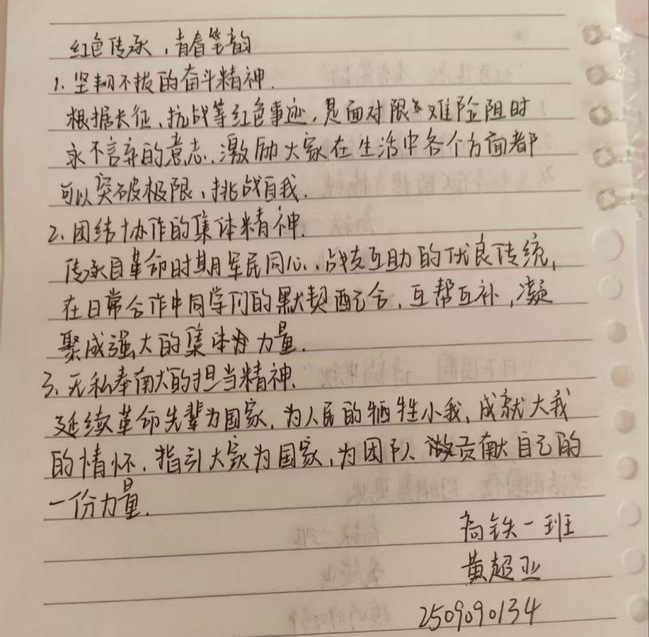 红色传承，青春笔韵
1. 坚韧不拔的奋斗精神.
根据长征、抗战等红色事迹，是面对限难险阻时
永不言弃的意志，激励大家在生活中各个方面都
可以突破极限，挑战自我.
2. 团结协作的集体精神.
传承自革命时期军民同心，战友互助的优良传统，
在日常合作中同学们的默契配合，互帮互补，凝
聚成强大的集体力量.
3. 无私奉献的担当精神.
延续革命先辈为国家，为人民的牺牲小我，成就大我
的情怀，指引大家为国家，为团队 贡献自己的
一份力量.
高铁一班
黄超亚
2509090134